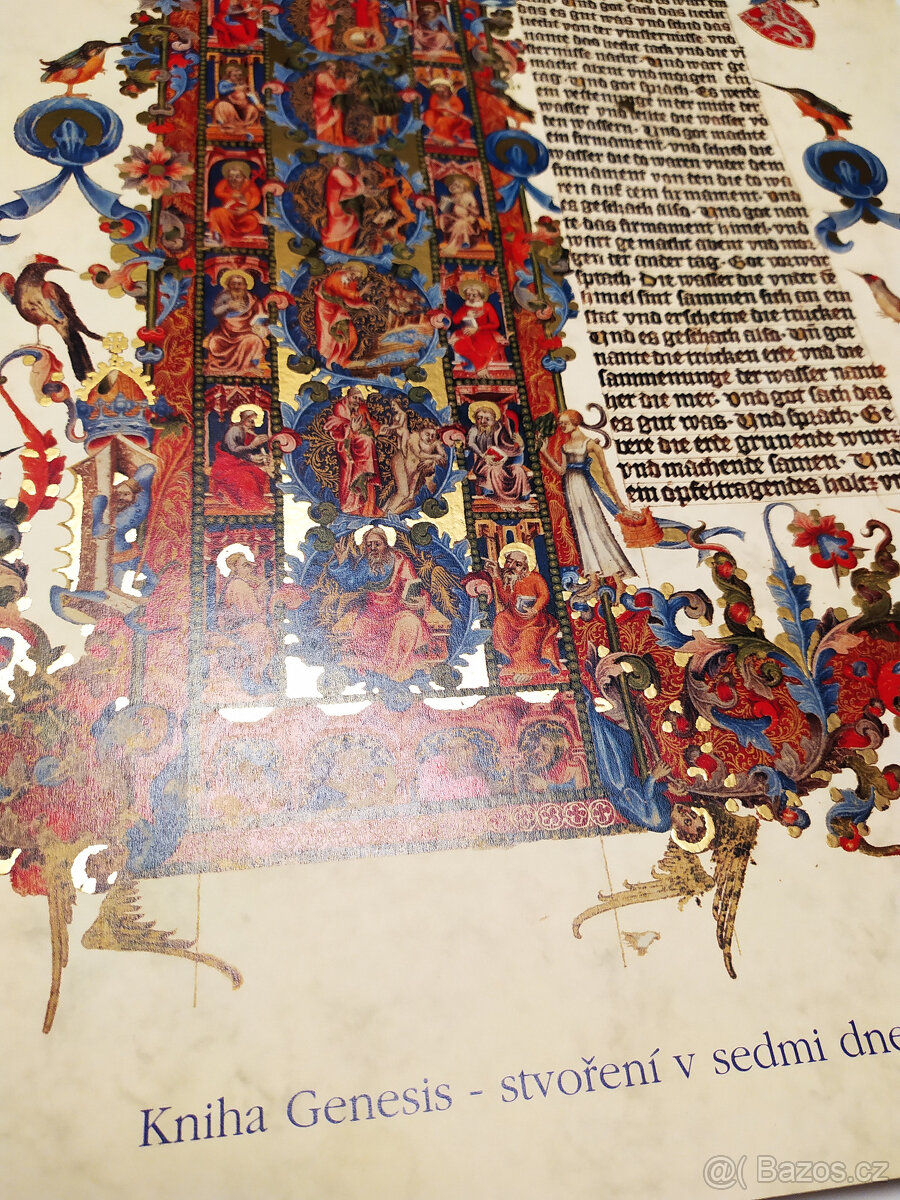 das es gut was vnd das liecht
nante das liecht tach vnd die vi
macht abent vnd moꝛgen · ein
tag · Vnd got sprach · Es werde
ein veste
in der mitte der
wasser
teile die wasser vō
den wassern · Vnd got machte
ein firmament · vnd schied die
wasser die do waren vnter dem
firmament von den die do wa
ren auf dem firmament · Vnd
es geschach also · Vnd got nan
te das firmament himel · vnd
wart gemacht abent vnd moꝛ
gen der ander tag · Got voꝛwar
sprach · Die wasser die vnder dē
himel sint sammen sich an ein
stat vnd erscheine die trucken
Vnd es geschach also · Vn̄ got
nante die trucken erte vnd die
sammenunge der wasser nante
her die mer · Vnd got sach das
es gut was · Vnd sprach · Ge
bere die erte grunente wurtz
vnd machente samen · Vnd
ein opfeltragendes holtz v
Kniha Genesis - stvoření v sedmi dne
@( Bazos.cz